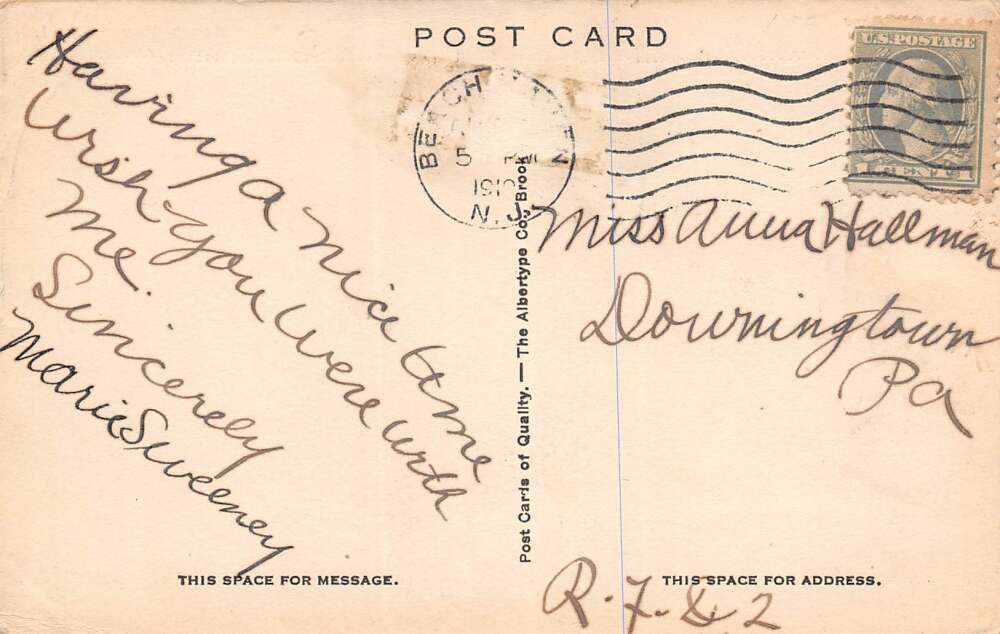 POST CARD
BEACH
5 PM
191
N.J.
U.S. POSTAGE
1 CENT 1
Having a nice time
wish you were with
me.
Sincerely
Marie Sweeney
Miss Anna Hallman
Downingtown
Pa
R. F. D. 2
Post Cards of Quality. — The Albertype Co., Brook
THIS SPACE FOR MESSAGE.
THIS SPACE FOR ADDRESS.